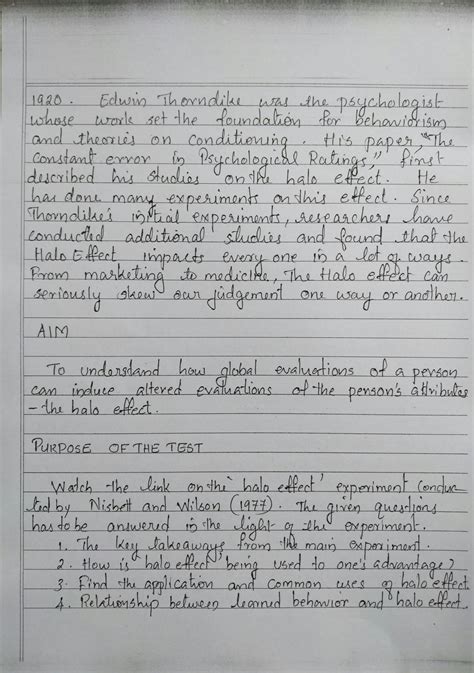 1920. Edwin Thorndike was the psychologist
whose work set the foundation for behaviorism
and theories on conditioning. His paper, "The
constant error in Psychological Ratings," first
described his studies on the halo effect. He
has done many experiments on this effect. Since
Thorndike's initial experiments, researchers have
conducted additional studies and found that the
Halo Effect impacts every one in a lot of ways.
From marketing to medicine, The Halo effect can
seriously skew our judgement one way or another.
AIM
To understand how global evaluations of a person
can induce altered evaluations of the person's attributes
- the halo effect.
PURPOSE OF THE TEST
Watch the link on the 'halo effect' experiment conduc-
ted by Nisbett and Wilson (1977). The given questions
has to be answered in the light of the experiment.
1. The key takeaways from the main experiment.
2. How is 'halo effect' being used to one's advantage?
3. Find the application and common uses of halo effect
4. Relationship between learned behavior and halo effect